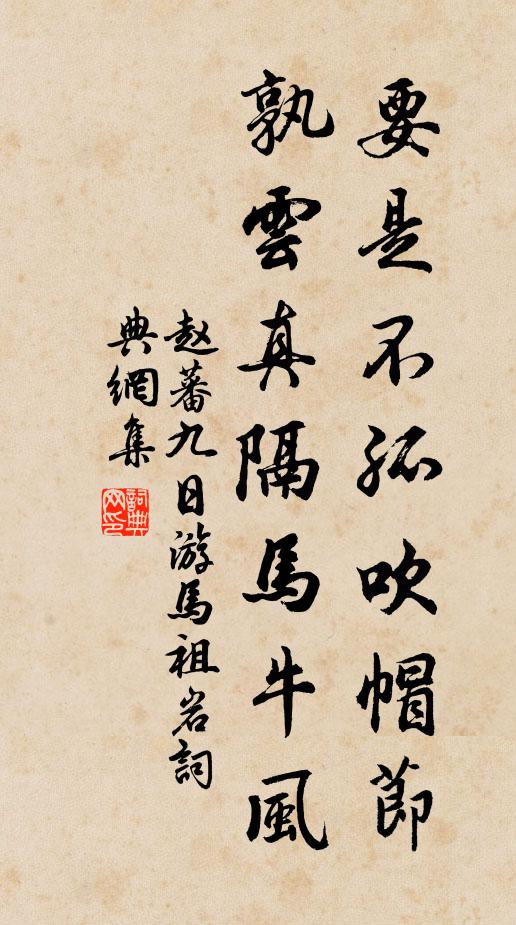 要是不孤吹帽節
孰雲真隔馬牛風
赵蕃九日游馬祖岩詞
典網集
詞典网印